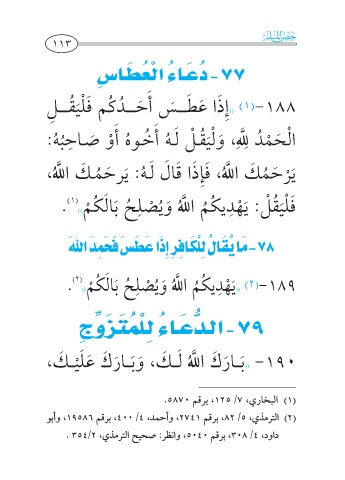 حصن المسلم
١١٣
٧٧- دُعَاءُ الْعُطَاسِ
١٨٨-(١) «إِذَا عَطَسَ أَحَدُكُم فَلْيَقُلِ
الْحَمْدُ لِلَّهِ، وَلْيَقُلْ لَهُ أَخُوهُ أَوْ صَاحِبُهُ:
يَرْحَمُكَ اللَّهُ، فَإِذَا قَالَ لَهُ: يَرحَمُكَ اللَّهُ،
فَلْيَقُلْ: يَهْدِيكُمُ اللَّهُ وَيُصْلِحُ بَالَكُمْ»(١).
٧٨- مَا يُقَالُ لِلْكَافِرِ إِذَا عَطَسَ فَحَمِدَ اللَّهَ
١٨٩-(٢) «يَهْدِيكُمُ اللَّهُ وَيُصْلِحُ بَالَكُمْ»(٢).
٧٩- الدُّعَاءُ لِلْمُتَزَوِّجِ
١٩٠- «بَارَكَ اللَّهُ لَكَ، وَبَارَكَ عَلَيْكَ،
(١) البخاري، ٧/ ١٢٥، برقم ٥٨٧٠.
(٢) الترمذي، ٥/ ٨٢، برقم ٢٧٤١، وأحمد، ٤/ ٤٠٠، برقم ١٩٥٨٦، وأبو
داود، ٤/ ٣٠٨، برقم ٥٠٤٠، وانظر: صحيح الترمذي، ٢/ ٣٥٤.